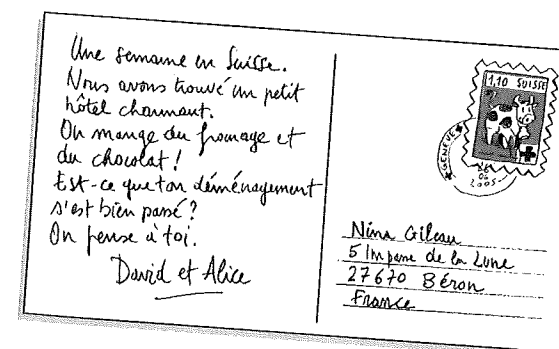 Une semaine en Suisse.
Nous avons trouvé un petit
hôtel charmant.
On mange du fromage et
du chocolat !
Est-ce que ton déménagement
s'est bien passé ?
On pense à toi.
David et Alice
1,10 SUISSE
GENEVE
2005
Nina Gileau
5 Impasse de la Lune
27670 Béron
France